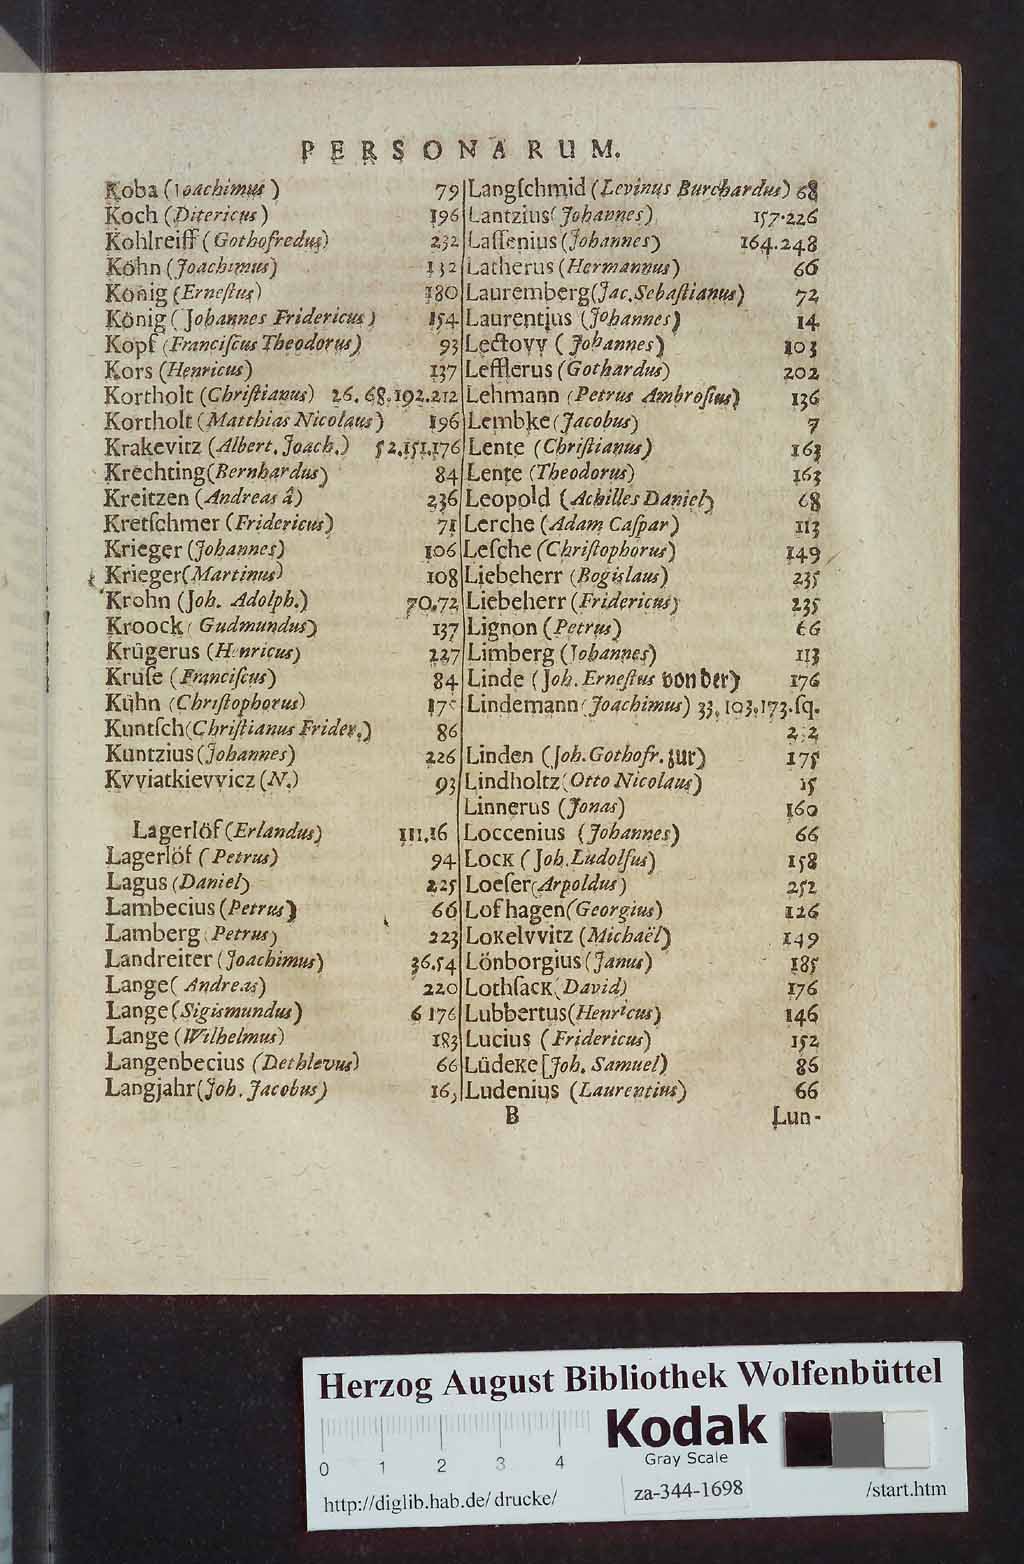 PERSONARUM.
Koba (Joachimus) 79
Koch (Ditericus) 196
Kohlreiff (Gothofredus) 232
Köhn (Joachimus) 132
König (Erneſtus) 180
König (Johannes Fridericus) 154
Kopf (Franciſcus Theodorus) 93
Kors (Henricus) 137
Kortholt (Chriſtianus) 26. 68. 192. 212
Kortholt (Matthias Nicolaus) 196
Krakevitz (Albert. Joach.) 52. 151. 176
Krechting (Bernhardus) 84
Kreitzen (Andreas â) 236
Kretſchmer (Fridericus) 71
Krieger (Johannes) 106
Krieger (Martinus) 108
Krohn (Joh. Adolph.) 70. 72
Kroock (Gudmundus) 137
Krügerus (Henricus) 227
Kruſe (Franciſcus) 84
Kühn (Chriſtophorus)
Kuntſch (Chriſtianus Frider.) 86
Kuntzius (Johannes) 226
Kvviatkievvicz (N.) 93
Lagerlöf (Erlandus) 111. 16
Lagerlöf (Petrus) 94
Lagus (Daniel) 225
Lambecius (Petrus) 66
Lamberg (Petrus) 223
Landreiter (Joachimus) 36. 54
Lange (Andreas) 220
Lange (Sigismundus) 6 176
Lange (Wilhelmus) 183
Langenbecius (Dethlevus) 66
Langjahr (Joh. Jacobus)
Langſchmid (Levinus Burchardus) 68
Lantzius (Johannes) 157. 226
Laſſenius (Johannes) 164. 248
Latherus (Hermannus) 66
Lauremberg (Jac. Sebaſtianus) 72
Laurentius (Johannes) 14
Lectovv (Johannes) 103
Lefflerus (Gothardus) 202
Lehmann (Petrus Ambroſius) 136
Lembke (Jacobus) 7
Lente (Chriſtianus) 163
Lente (Theodorus) 163
Leopold (Achilles Daniel) 68
Lerche (Adam Caſpar) 113
Leſche (Chriſtophorus) 149
Liebeherr (Bogislaus) 235
Liebeherr (Fridericus) 235
Lignon (Petrus) 66
Limberg (Johannes) 113
Linde (Joh. Erneſtus von der) 176
Lindemann (Joachimus) 33. 103. 173. ſq.
Linden (Joh. Gothofr. zur) 175
Lindholtz (Otto Nicolaus) 15
Linnerus (Jonas) 160
Loccenius (Johannes) 66
Lock (Joh. Ludolfus) 158
Loeſer (Arnoldus) 252
Lofhagen (Georgius) 126
Lokelvvitz (Michaël) 149
Lönborgius (Janus) 185
Lothſack (David) 176
Lubbertus (Henricus) 146
Lucius (Fridericus) 152
Lüdeke [Joh. Samuel) 86
Ludenius (Laurentius) 66
B Lun-
Herzog August Bibliothek Wolfenbüttel
Kodak
Gray Scale
0 1 2 3 4
http://diglib.hab.de/drucke/ za-344-1698 /start.htm